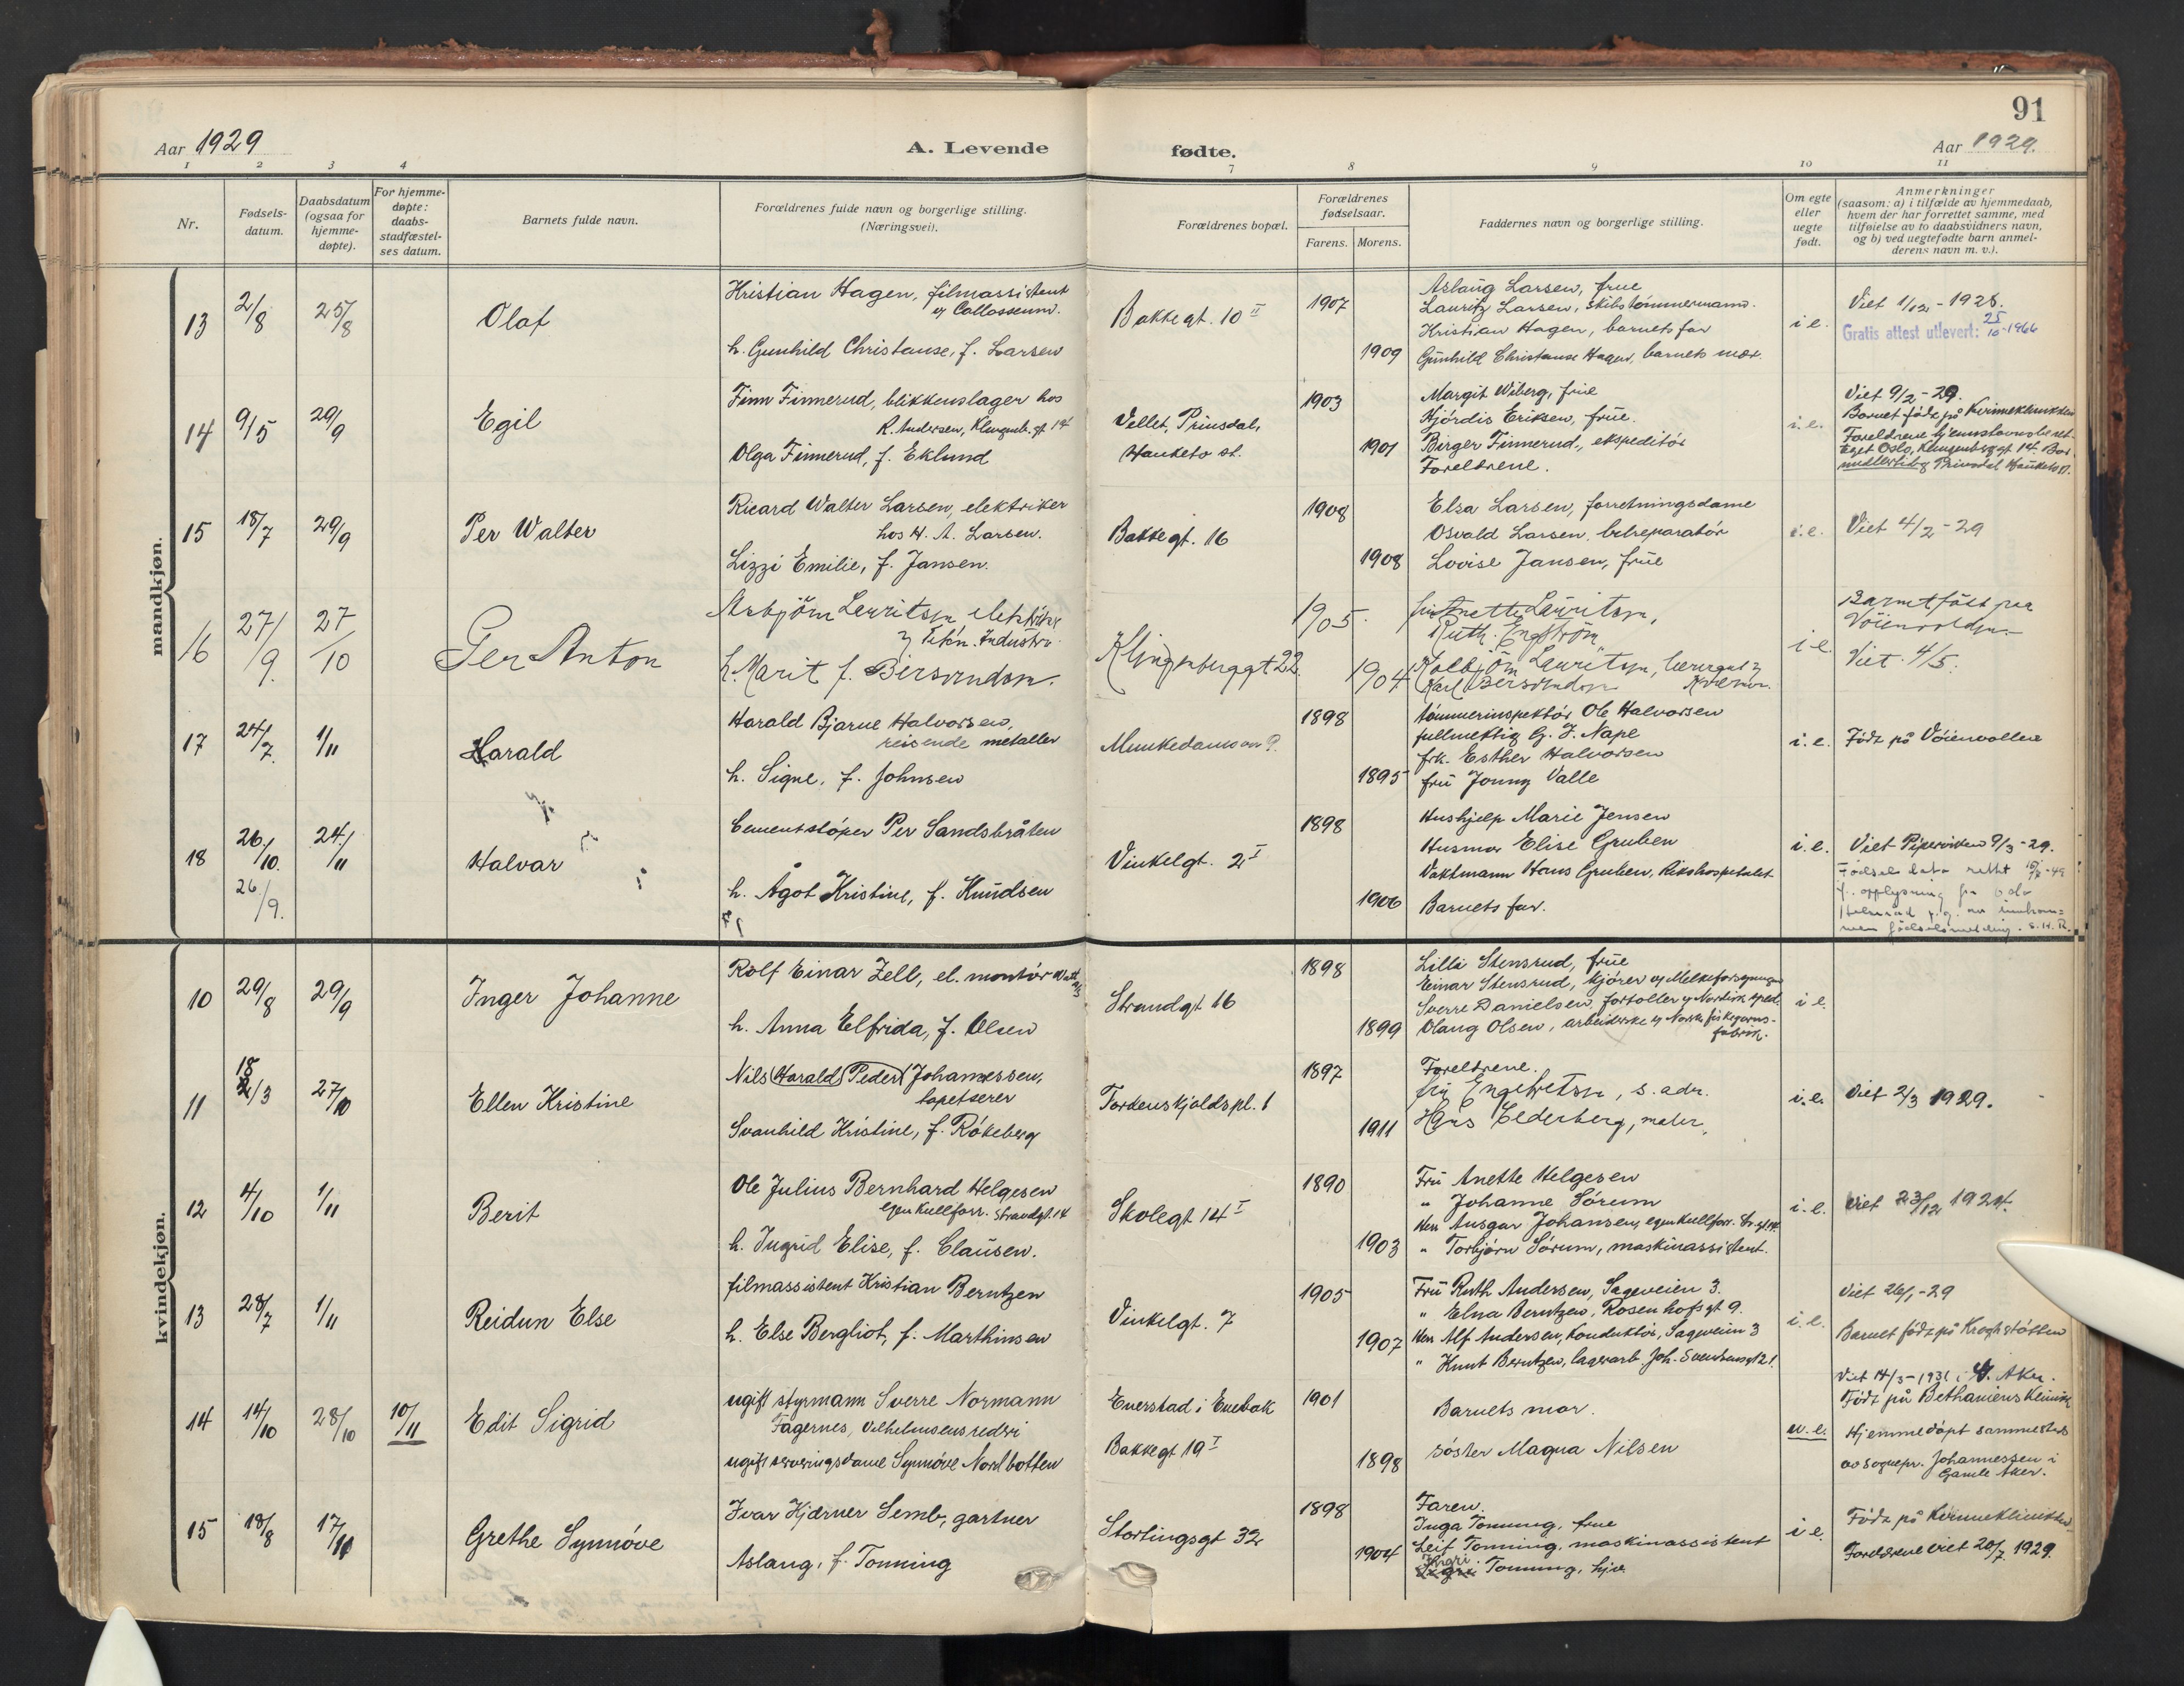 91
Aar 1929
A. Levende
fødte.
Aar 1929.
1 2 3 4 7 8 9 10 11
Nr.
Fødsels-
datum.
Daabsdatum
(ogsaa for
hjemme-
døpte).
For hjemme-
døpte:
daabs-
stadfæstel-
ses datum.
Barnets fulde navn.
Forældrenes fulde navn og borgerlige stilling.
(Næringsvei).
Forældrenes bopæl.
Forældrenes
fødselsaar.
Farens. Morens.
Faddernes navn og borgerlige stilling.
Om egte
eller
uegte
født.
Anmerkninger
(saasom: a) i tilfælde av hjemmedaab,
hvem der har forrettet samme, med
tilføielse av to daabsvidners navn,
og b) ved uegtefødte barn anmel-
derens navn m. v.).
mandkjøn.
13 2/8 25/8 Olaf
Kristian Hagen, filmassistent
v/ Collosseum.
h. Gunhild Christanse, f. Larsen
Bakkegt. 10 II
1907
1909
Aslaug Larsen, frue
Lauritz Larsen, skibstømmermann.
Kristian Hagen, barnets far
Gunhild Christanse Hagen, barnets mor.
i e.
Viet 1/12 - 1928.
Gratis attest utlevert: 25/10-1966
14 9/5 29/9 Egil
Finn Finnerud, blikkenslager hos
R. Andersen, Klingenb. gt 14
Olga Finnerud, f. Eklund
Vellet, Prinsdal,
Hauketo st.
1903
1901
Margit Wiberg, frue
Hjørdis Eriksen, frue.
Birger Finnerud, ekspeditør
Foreldrene.
i.e.
Viet 9/2 - 29.
Barnet født på Kvinneklinikken
Foreldrene hjemstavnsberet-
tiget Oslo, Klingenberggt 14. Bor
midlertidig Prinsdal Hauketo st.
15 18/7 29/9 Per Walter
Ricard Walter Larsen, elektriker
hos H. A. Larsen.
Lizzi Emilie, f. Jansen.
Bakkegt. 16
1908
1908
Elsa Larsen, forretningsdame
Osvald Larsen, bilreparatør
Lovise Jansen, frue
i.e.
Viet 4/2 - 29
16 27/9. 27/10 Per Anton
Asbjörn Lauritsen elektriker
v/ Telefon. Industri.
h. Marit f. Bersvendsen.
Klingenberggt 22.
1905.
1904
fru Anette Lauritsen,
Ruth. Engström
Kolbjörn Lauritsen,
Karl Bersvendsen
i e.
Barnet födt paa
Vöienvolden.
Viet. 4/5.
17 24/7. 1/11 Harald
Harald Bjarne Halvorsen,
reisende metaller
h. Signe, f. Johnsen
Munkedamsvn 9.
1898
1895
Tømmerinspektør Ole Halvorsen
fullmektig G. J. Nape
frk. Esther Halvorsen
fru Jonny Valle
i.e.
Født på Vøienvollen
18 26/10. 24/11 Halvar
26/9.
Cementstøper Per Sandsbråten
h. Ågot Kristine, f. Knudsen
Vinkelgt. 2 I
1898
1906
Hushjelp Marie Jensen
Husmor Elise Gruben
Vaktmann Hans Gruben, Rikshospitalet
Barnets far.
i.e.
Viet Pipervikens 9/3 - 29.
Fødselsdato rettet
f. opplysning fra Oslo
Helseråd p.g. av innkom=
men fødselsmelding. S.H.R.
kvindekjøn.
10 29/8 29/9 Inger Johanne
Rolf Einar Zell, el. montør
h. Anna Elfrida, f. Olsen
Strandgt 16
1898
1899
Lilli Stensrud, frue
Einar Stensrud, kjører v/ Melkeforsyningen
Sverre Danielsen, fortoller v/ Nordisk sped.
Olaug Olsen, arbeiderske v/ Norsk fiskegarns-
fabrik.
i e.
11 18/3 27/10 Ellen Kristine
Nils (Harald) (Peder) Johannessen,
tapetserer
Svanhild Kristine, f. Røkeberg
Tordenskjoldspl. 1
1897
1911
Foreldrene.
fru Engebretsen, s. adr.
Hans Cederberg, maler.
i.e.
Viet 2/3 1929.
12 4/10 1/11 Berit
Ole Julius Bernhard Helgesen
egen kullforr. Strandgt. 14
h. Ingrid Elise, f. Clausen.
Skolegt 14 I
1890
1903
Fru Anette Helgesen
" Johanne Sørum
Herr Ansgar Johansen, egen kullforr. Str. gt. 14.
" Torbjørn Sørum, maskinassistent.
i.e.
viet 23/12 1924.
13 28/7 1/11 Reidun Else
filmassistent Kristian Berntzen
h. Else Bergliot, f. Marthinsen
Vinkelgt. 7
1905
1907
Fru Ruth Andersen, Sageveien 3.
" Elna Berntzen, Rosenhofsgt 9.
Herr Alf Andersen, konduktør, Sageveien 3
" Knut Berntzen, lagerarb. Joh. Svendsensgt 21.
i.e.
Viet 26/1 - 29
Barnet født på Kroghstøtten
14 14/10 28/10 10/11 Edit Sigrid
ugift styrmann Sverre Normann
Fagernes, Vilhelmsens rederi
ugift serveringsdame Synnøve Nordbotten
Enerstad i Enebak
Bakkegt 19 I
1901
1898
Barnets mor.
søster Magna Nilsen
u.e.
Viet 14/3 - 1931 i V. Aker.
Født på Bethaniens klinikk
Hjemmedøpt sammesteds
av sognepr. Johannessen i
Gamle Aker.
15 18/8 17/11 Grethe Synnøve
Ivar Hjerner Semb, gartner
Aslaug, f. Tonning
Stortingsgt 32
1898
1904
Faren.
Inga Tonning, frue
Leif Tonning, maskinassistent
Ingri Tonning, hjv.
i e.
Født på Kvinneklinikken
Foreldrene viet 20/7 1929.